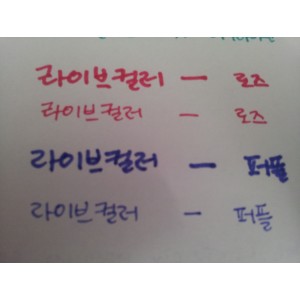 라이브컬러 — 로즈
라이브컬러 — 로즈
라이브컬러 — 퍼플
라이브컬러 — 퍼플